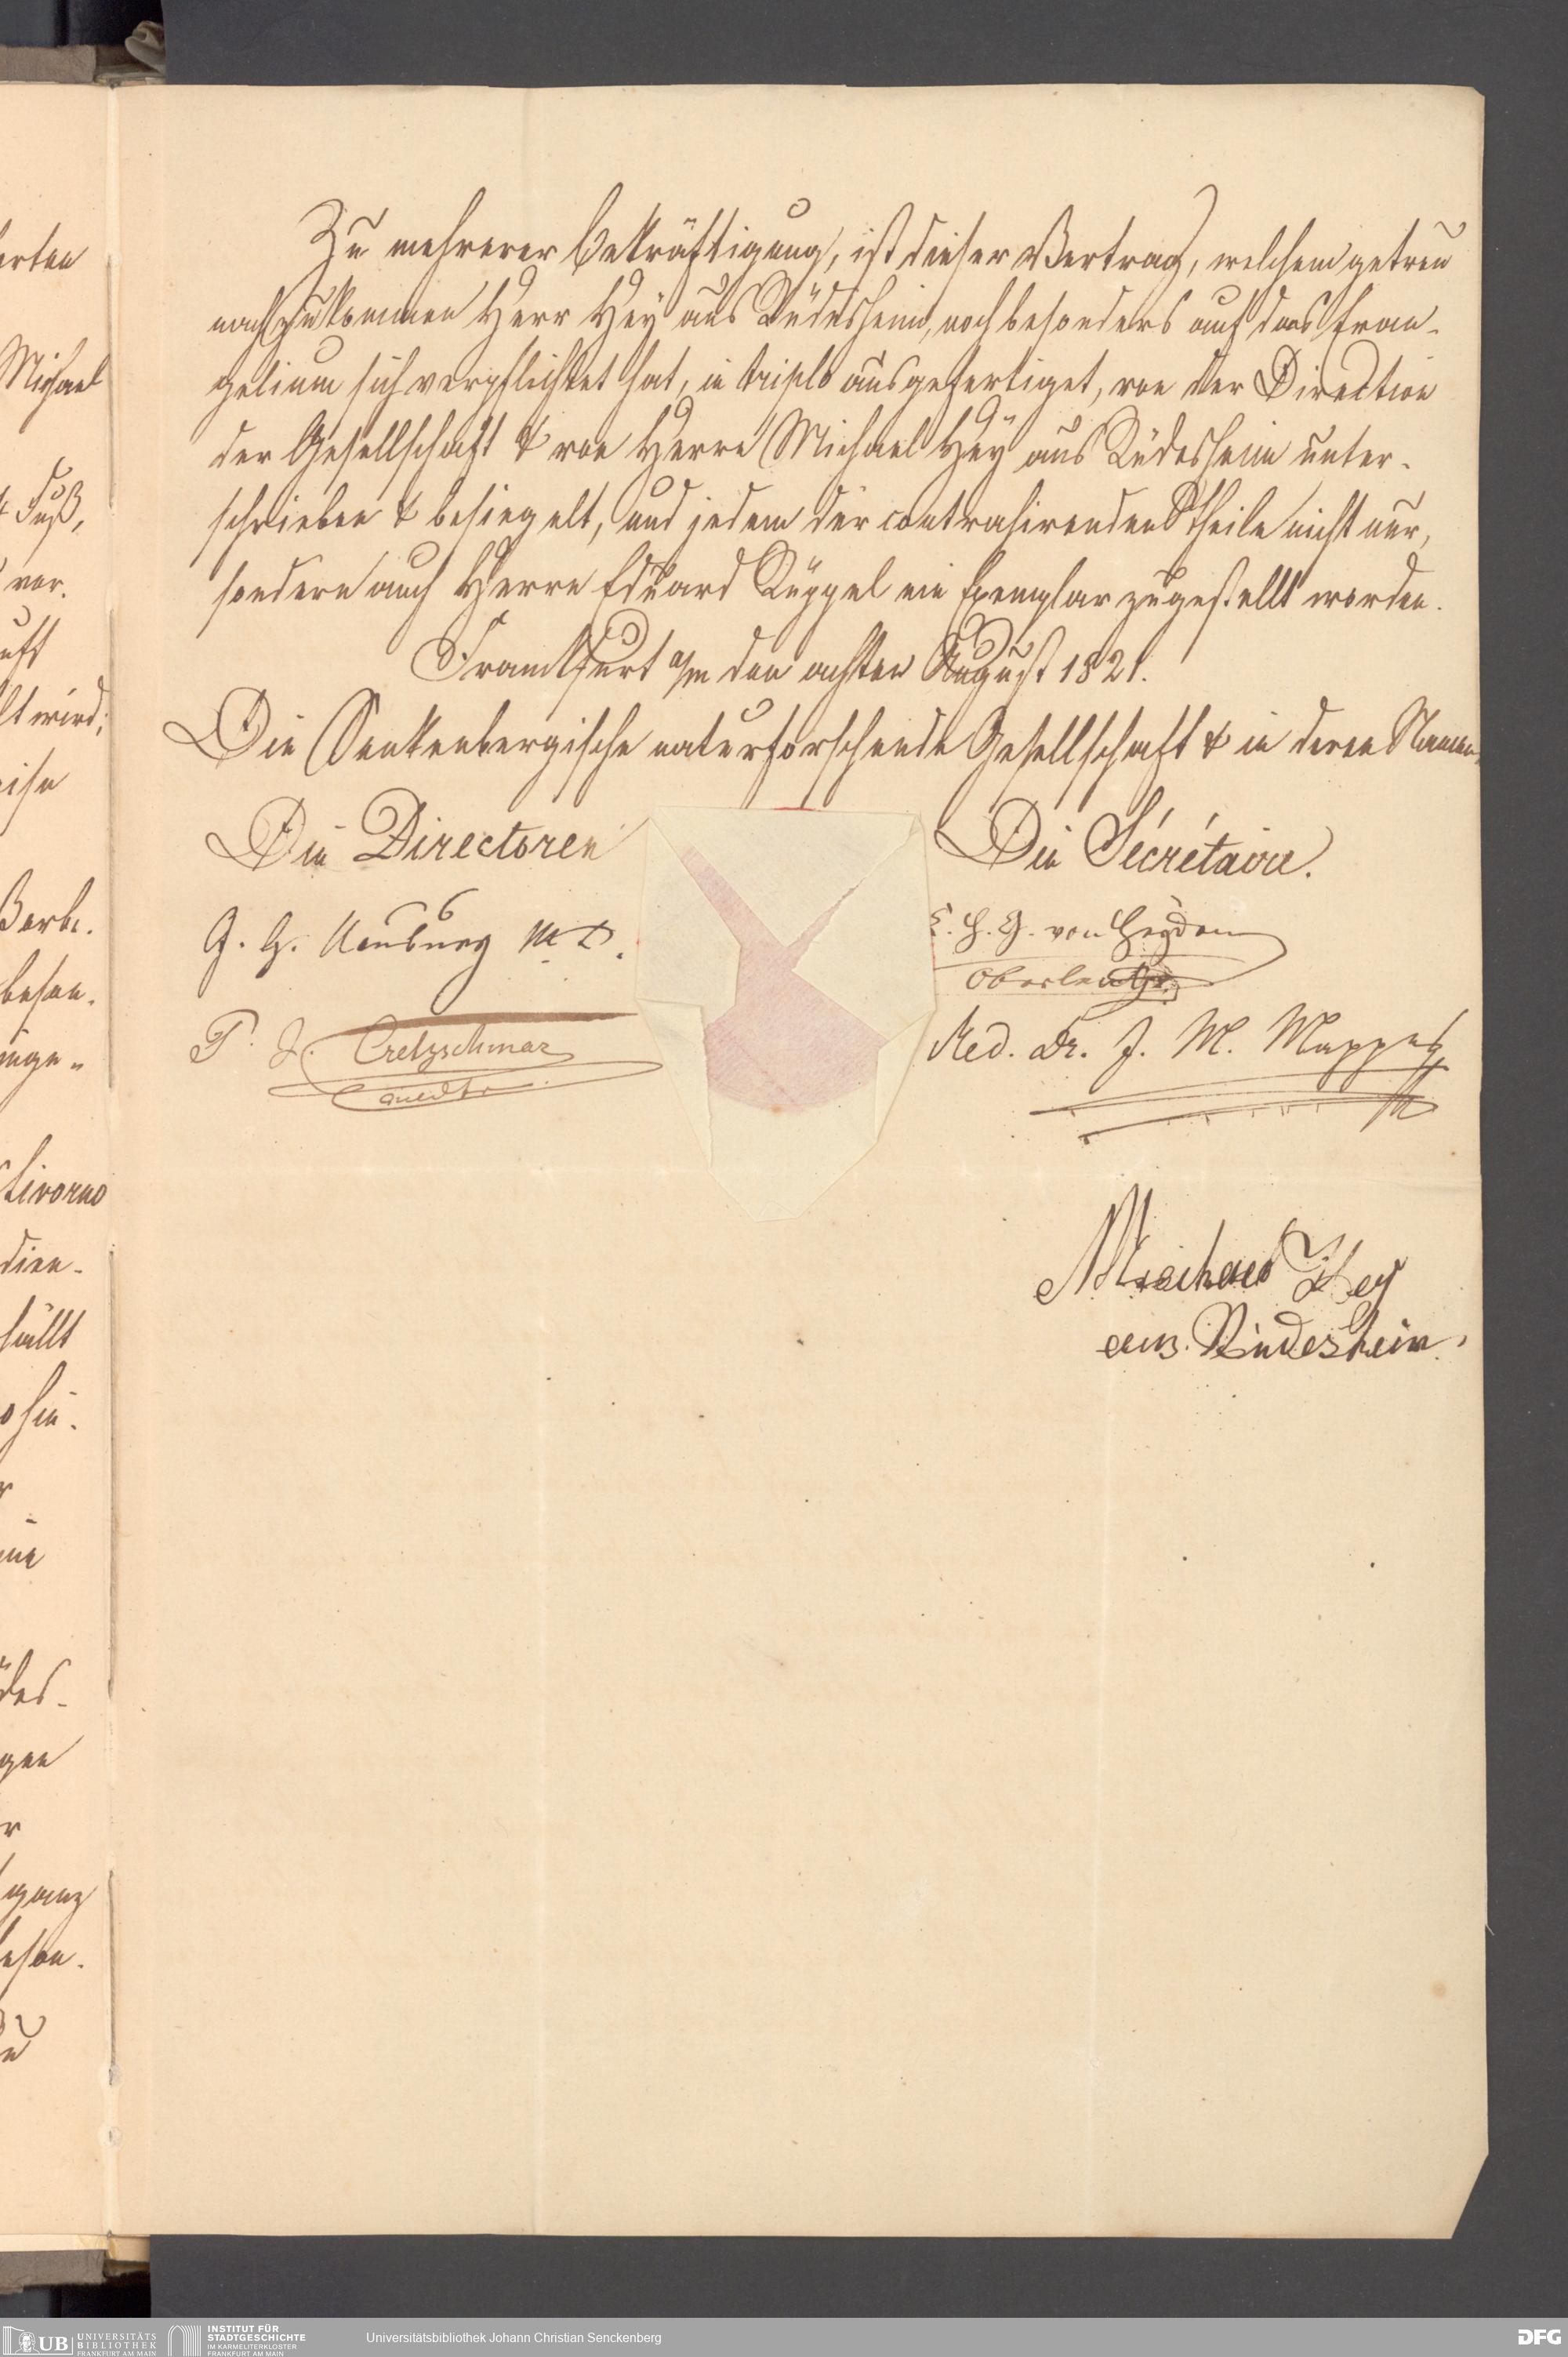 Zu mehrerer Bekräftigung, ist dieser Vertrag, welchem getreu
nachzukommen Herr Hey aus Rüdesheim, noch besonders auf das Evan-
gelium sich verpflichtet hat, in triplo ausgefertiget, von der Direction
der Gesellschaft & von Herrn Michael Hey aus Rüdesheim unter-
schrieben & besiegelt, und jedem der contrahirenden Theile nicht nur,
sondern auch Herrn Eduard Rüppel ein Exemplar zugestellt worden.
Frankfurt a/m den achten August 1821.
Die Senkenbergische naturforschende Gesellschaft & in deren Namen
Die Directoren
Die Sécrétaire.
G. H. Neuburg M. D.
C. H. G. von Heyden
Oberleut.
P. J. Cretzschmar
Med. Dr. J. M. Mappes
Michael Hey
aus. Rüdesheim.
erten
Michael
4 Fuß,
vor.
uft
lt wird;
eise
Barb.
beson.
Livorno
dien-
hällt
ohin.
r
ine
des-
gen
r
ganz
eson.
UB UNIVERSITÄTS
BIBLIOTHEK
FRANKFURT AM MAIN
INSTITUT FÜR
STADTGESCHICHTE
IM KARMELITERKLOSTER
FRANKFURT AM MAIN
Universitätsbibliothek Johann Christian Senckenberg
DFG